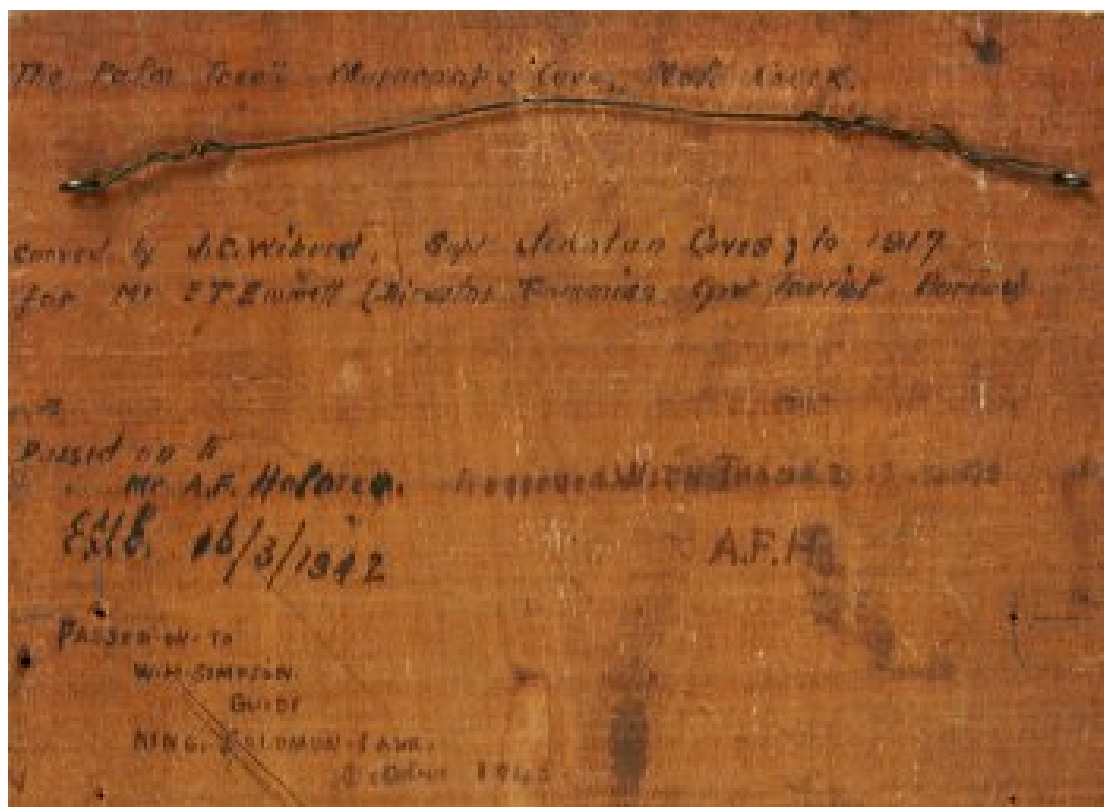 The Palm Tree" Cave, Mole Creek.
Carved by J.C. Wiburd, Supt Jenolan Caves, to 1917
for Mr E T Emmett (Director Tasmanian Govt Tourist Bureau)
Passed on to
Mr A.F.
E.T.E. 16/3/1942
WITH THANKS
A.F.H.
PASSED ON TO
W.H. SIMPSON
GUIDE
KING SOLOMON CAVE.